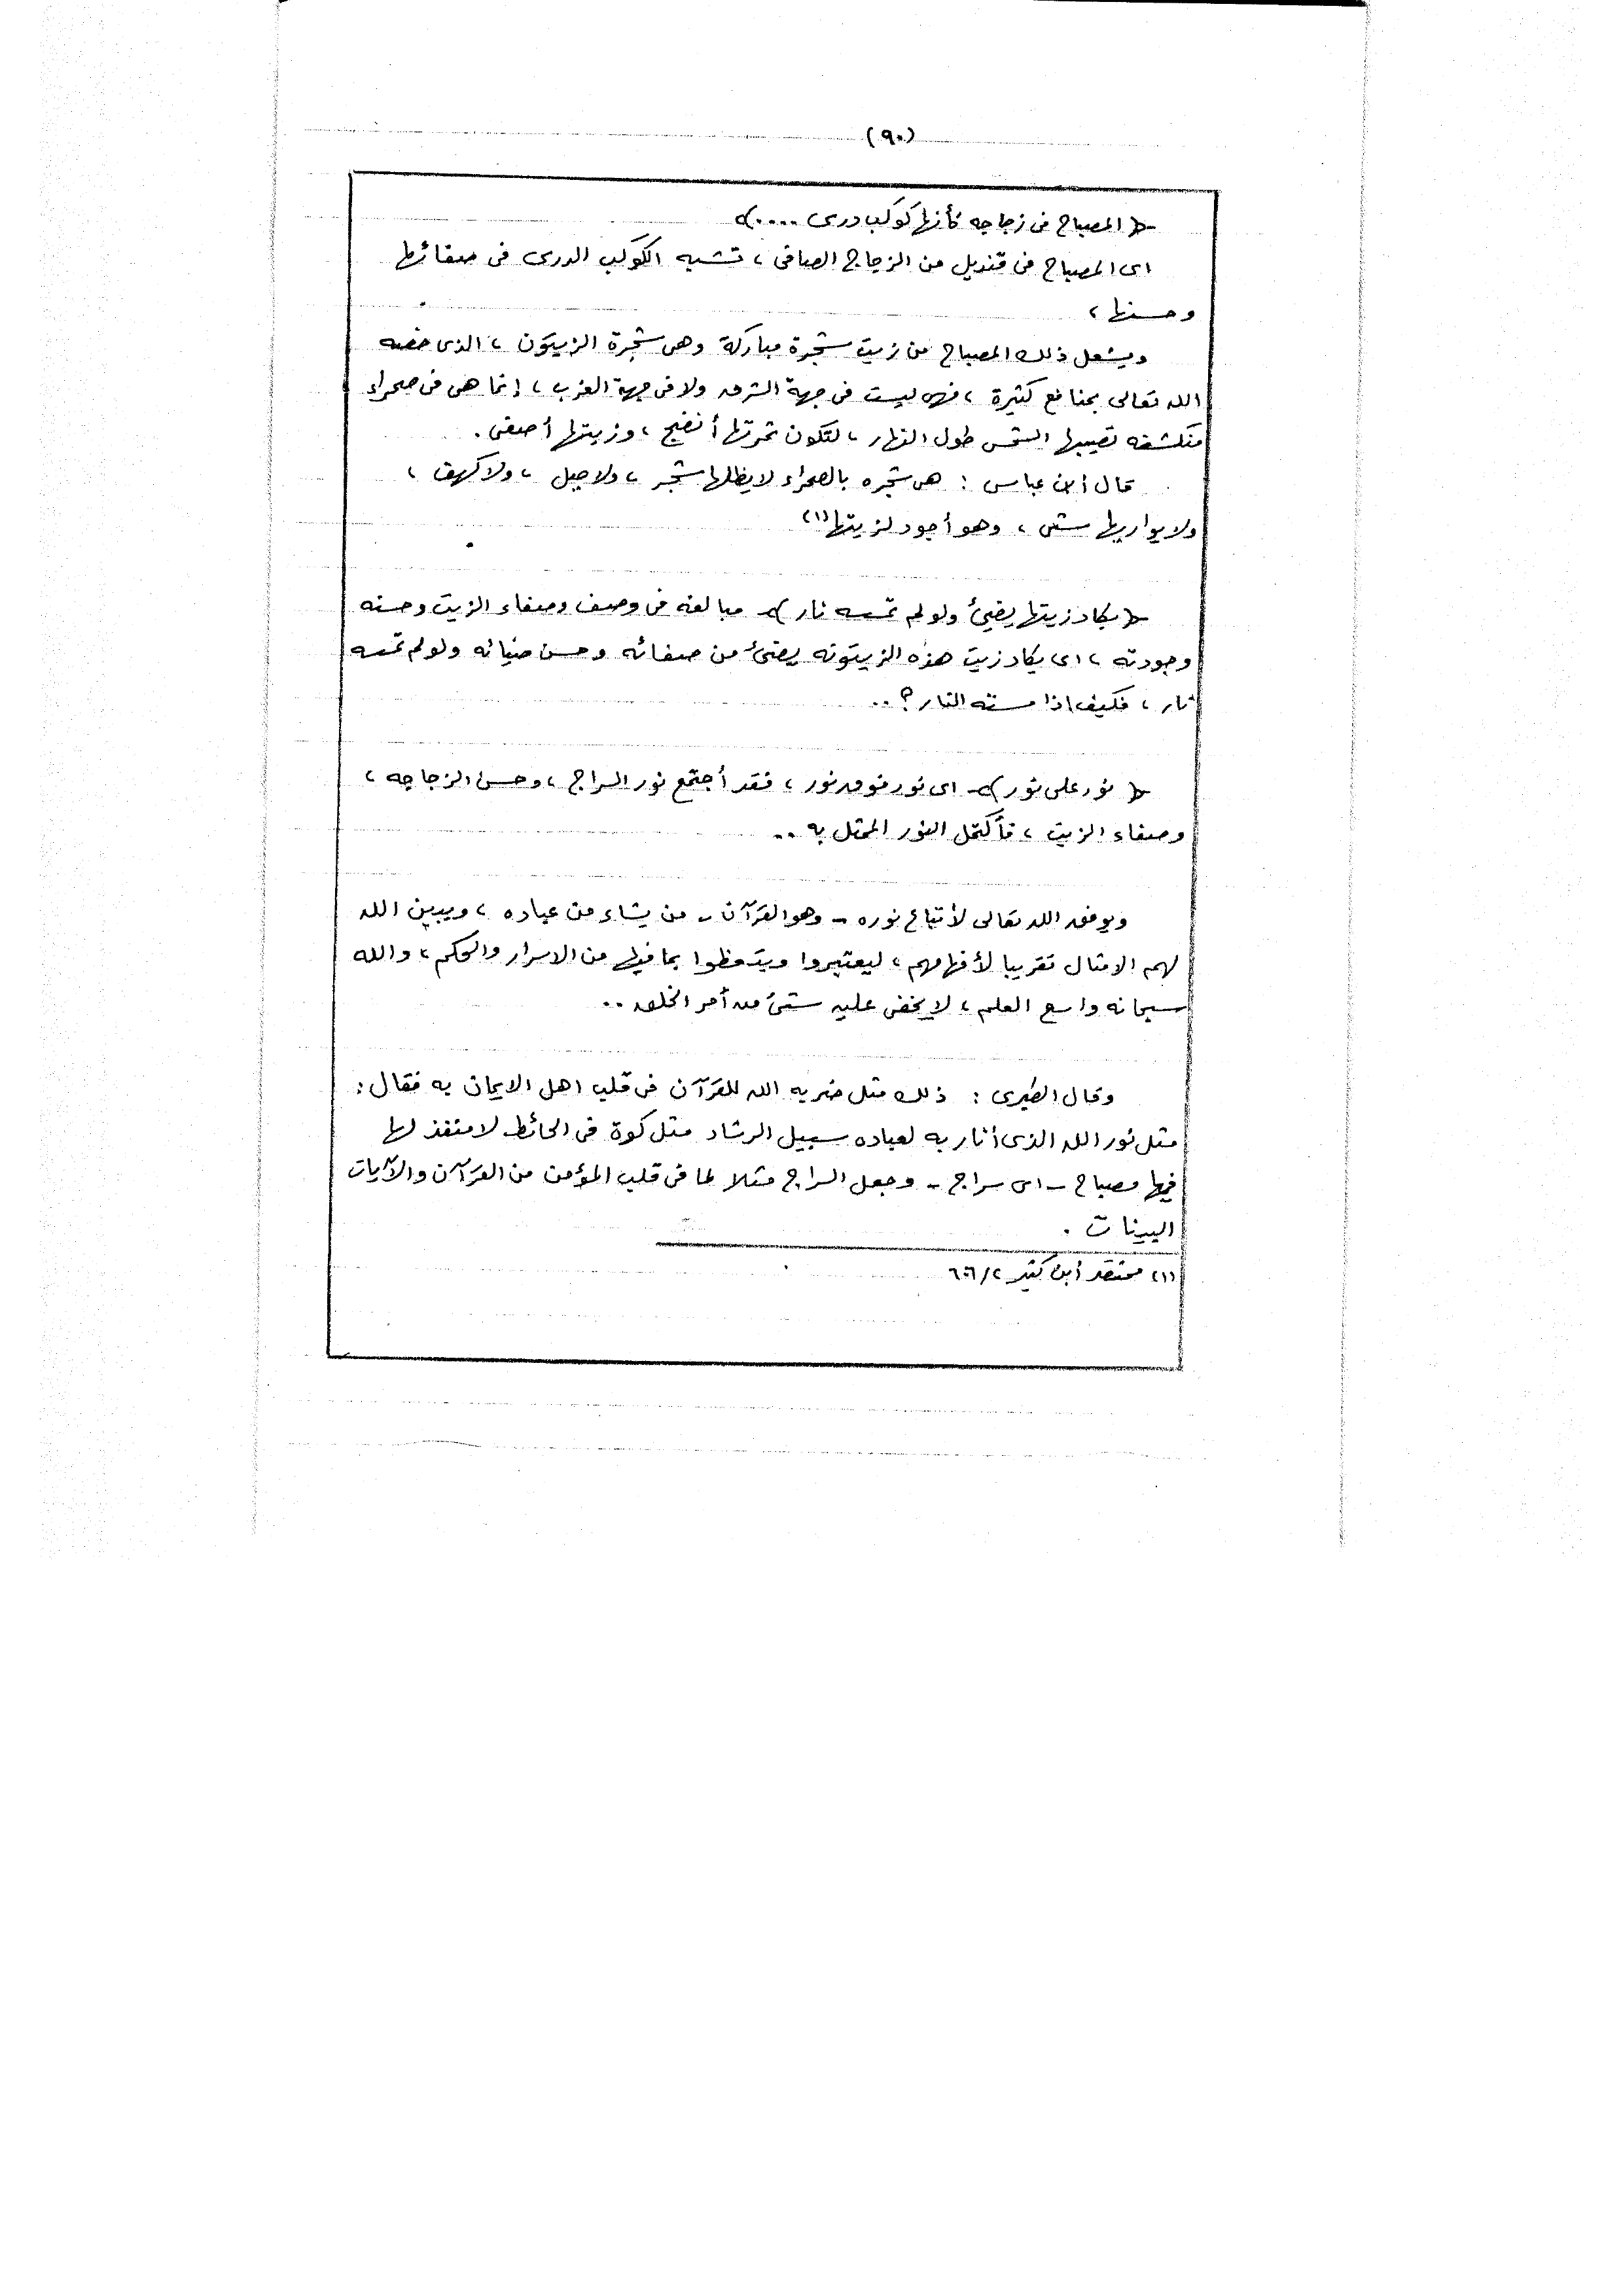 (٩٠)
﴿ المصباح فى زجاجه كأنها كوكب درى ....﴾
اى المصباح فى قنديل من الزجاج الصافى ، تشبه الكوكب الدرى فى صفائها
وحسنها ،
ويشعل ذلك المصباح من زيت شجرة مباركة وهى شجرة الزيتون ، الذى خصه
الله تعالى بمنافع كثيرة ، فهى ليست فى جهة الشرق ولا فى جهة الغرب ، إنما هى فى صحراء
منكشفه تصيبها الشمس طول النهار ، لتكون ثمرتها أنضج ، وزيتها أصفى .
قال أبن عباس : هى شجره بالصحراء لا يظلها شجر ، ولا جبل ، ولا كهف ،
ولا يواريها شئ ، وهو أجود لزيتها (١)
﴿ يكاد زيتها يضيئ ولو لم تمسه نار ﴾ مبالغه فى وصف وصفاء الزيت وحسنه
وجودته ، اى يكاد زيت هذه الزيتونه يضئ من صفائه وحسن ضيائه ولو لم تمسه
نار ، فكيف اذا مسته النار ؟ ..
﴿ نور على نور ﴾ اى نور فوق نور ، فقد أجتمع نور السراج ، وحسن الزجاجه ،
وصفاء الزيت ، فأكتمل النور الممثل به ..
ويوفق الله تعالى لأتباع نوره - وهو القرآن - من يشاء من عباده ، ويبين الله
لهم الامثال تقريبا لأفهامهم ، ليعتبروا ويتعظوا بما فيها من الاسرار والحكم ، والله
سبحانه واسع العلم ، لا يخفى عليه شئ من أمر الخلق ..
وقال الطبرى : ذلك مثل ضربه الله للقرآن فى قلب اهل الايمان به فقال :
مثل نور الله الذى أنار به لعباده سبيل الرشاد مثل كوة فى الحائط لا منفذ لها
فيها مصباح - اى سراج - وجعل السراج مثلا لما فى قلب المؤمن من القرآن والآيات
البينات .
(١) مختصر أبن كثير ٢/ ٦٠٦